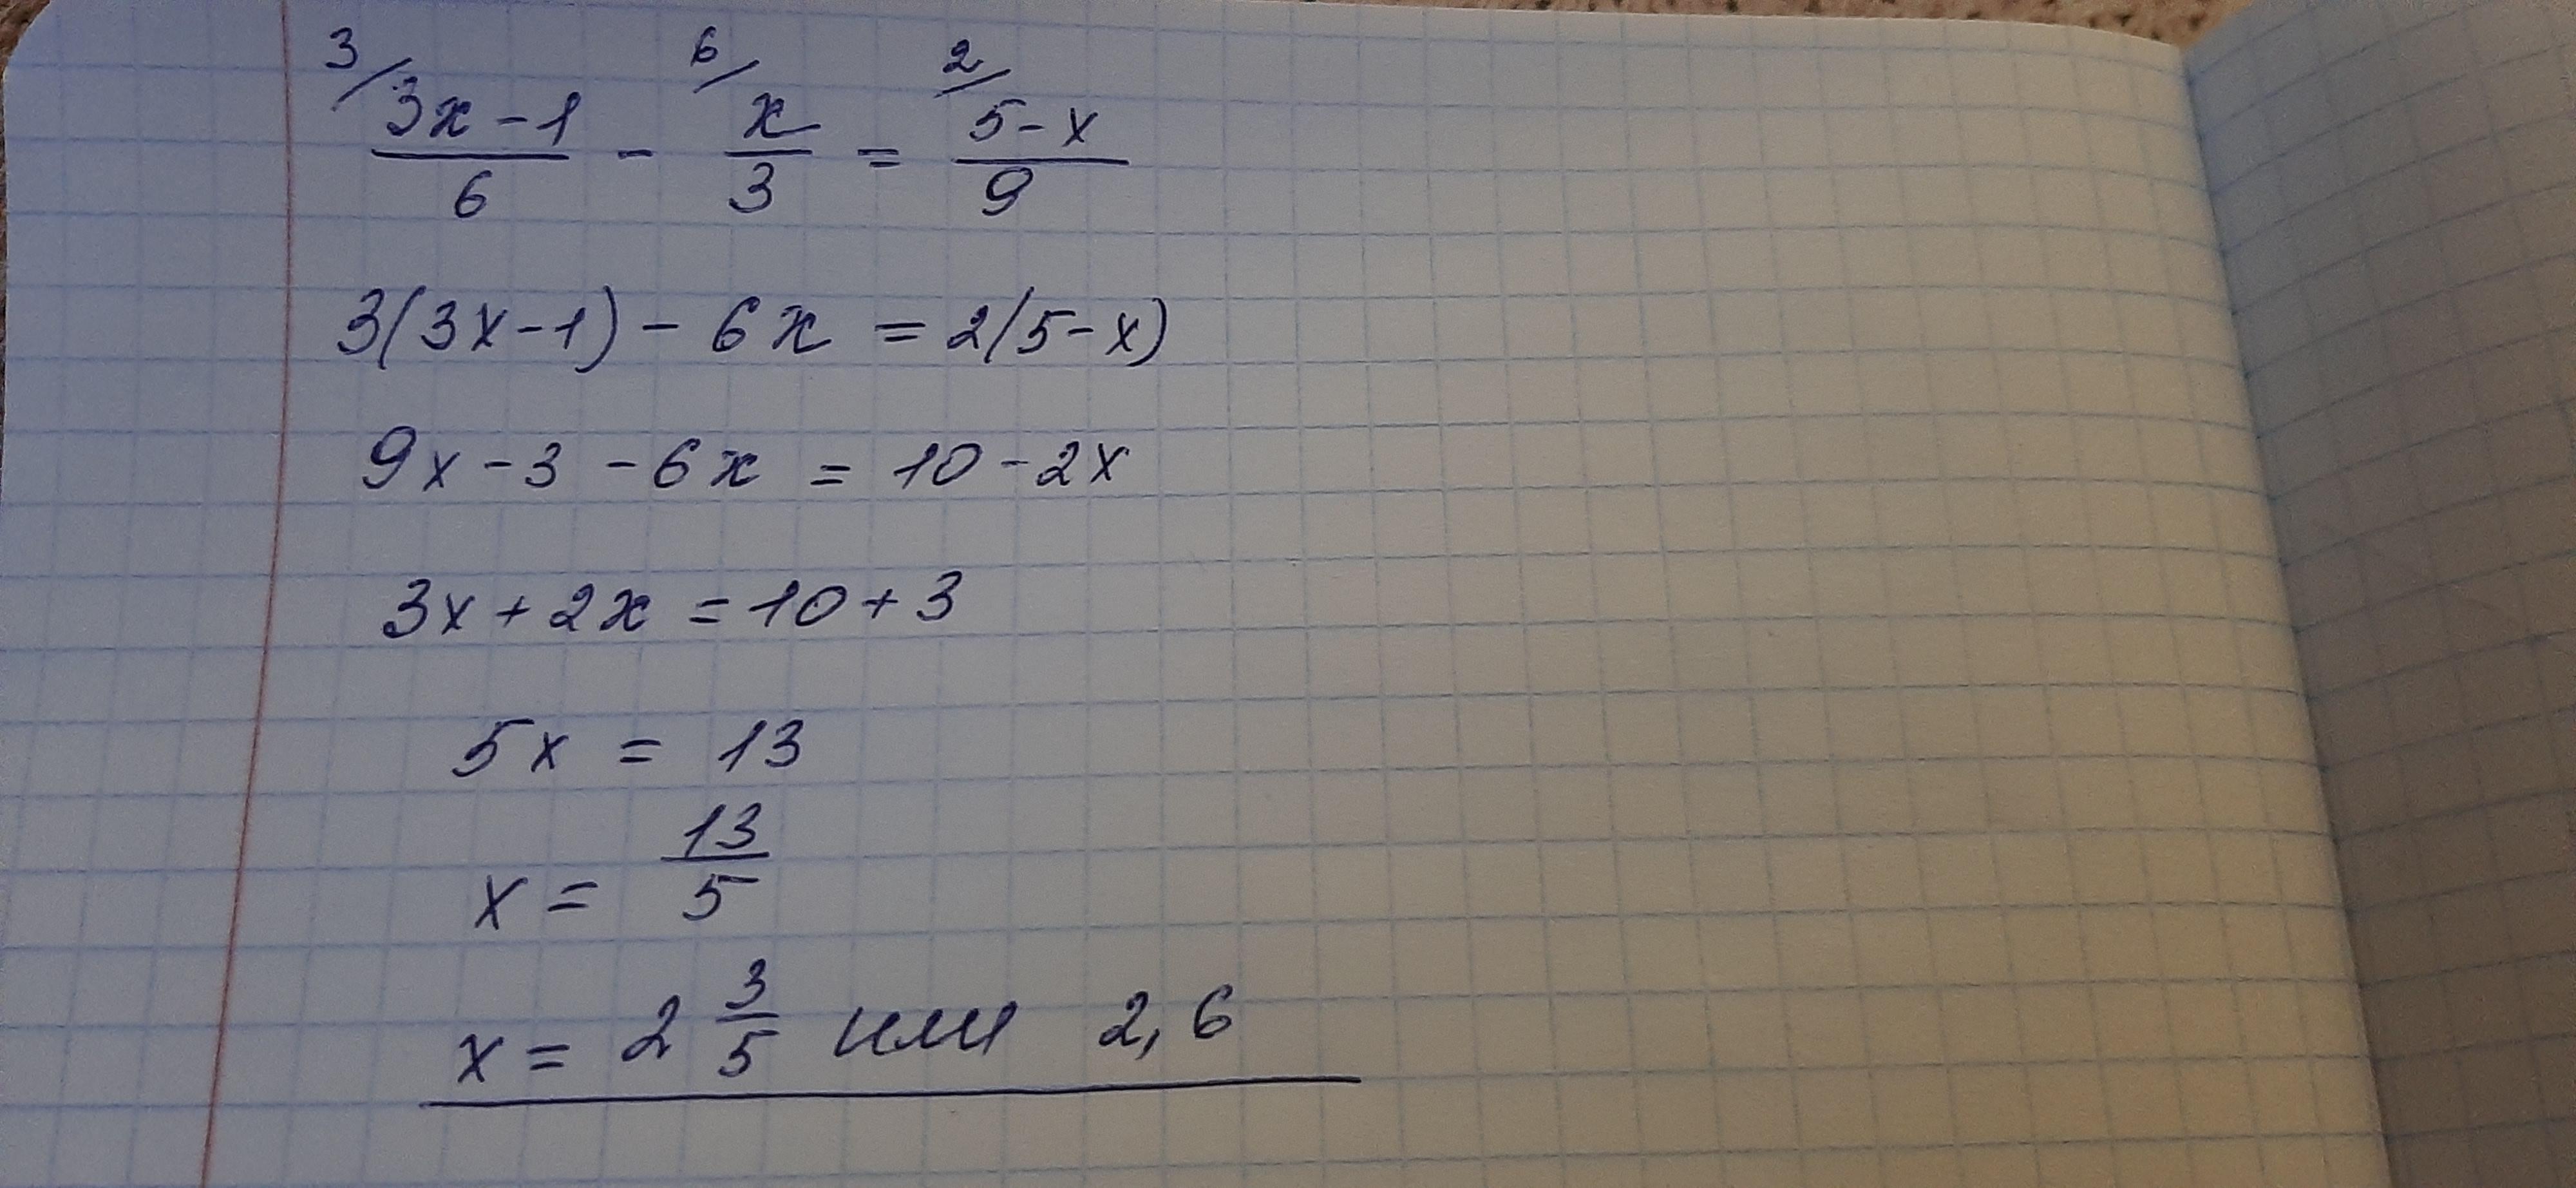 3/ 6/ 2/
3x-1/6 - x/3 = 5-x/9
3(3x-1) - 6x = 2(5-x)
9x-3-6x = 10-2x
3x+2x = 10+3
5x = 13
x = 13/5
x = 2 3/5 или 2,6